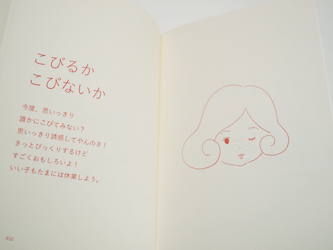 こびるか
こびないか
今度、思いっきり
誰かにこびてみない？
思いっきり誘惑してやんのさ！
きっとびっくりするけど
すごくおもしろいよ！
いい子もたまには休業しよう。